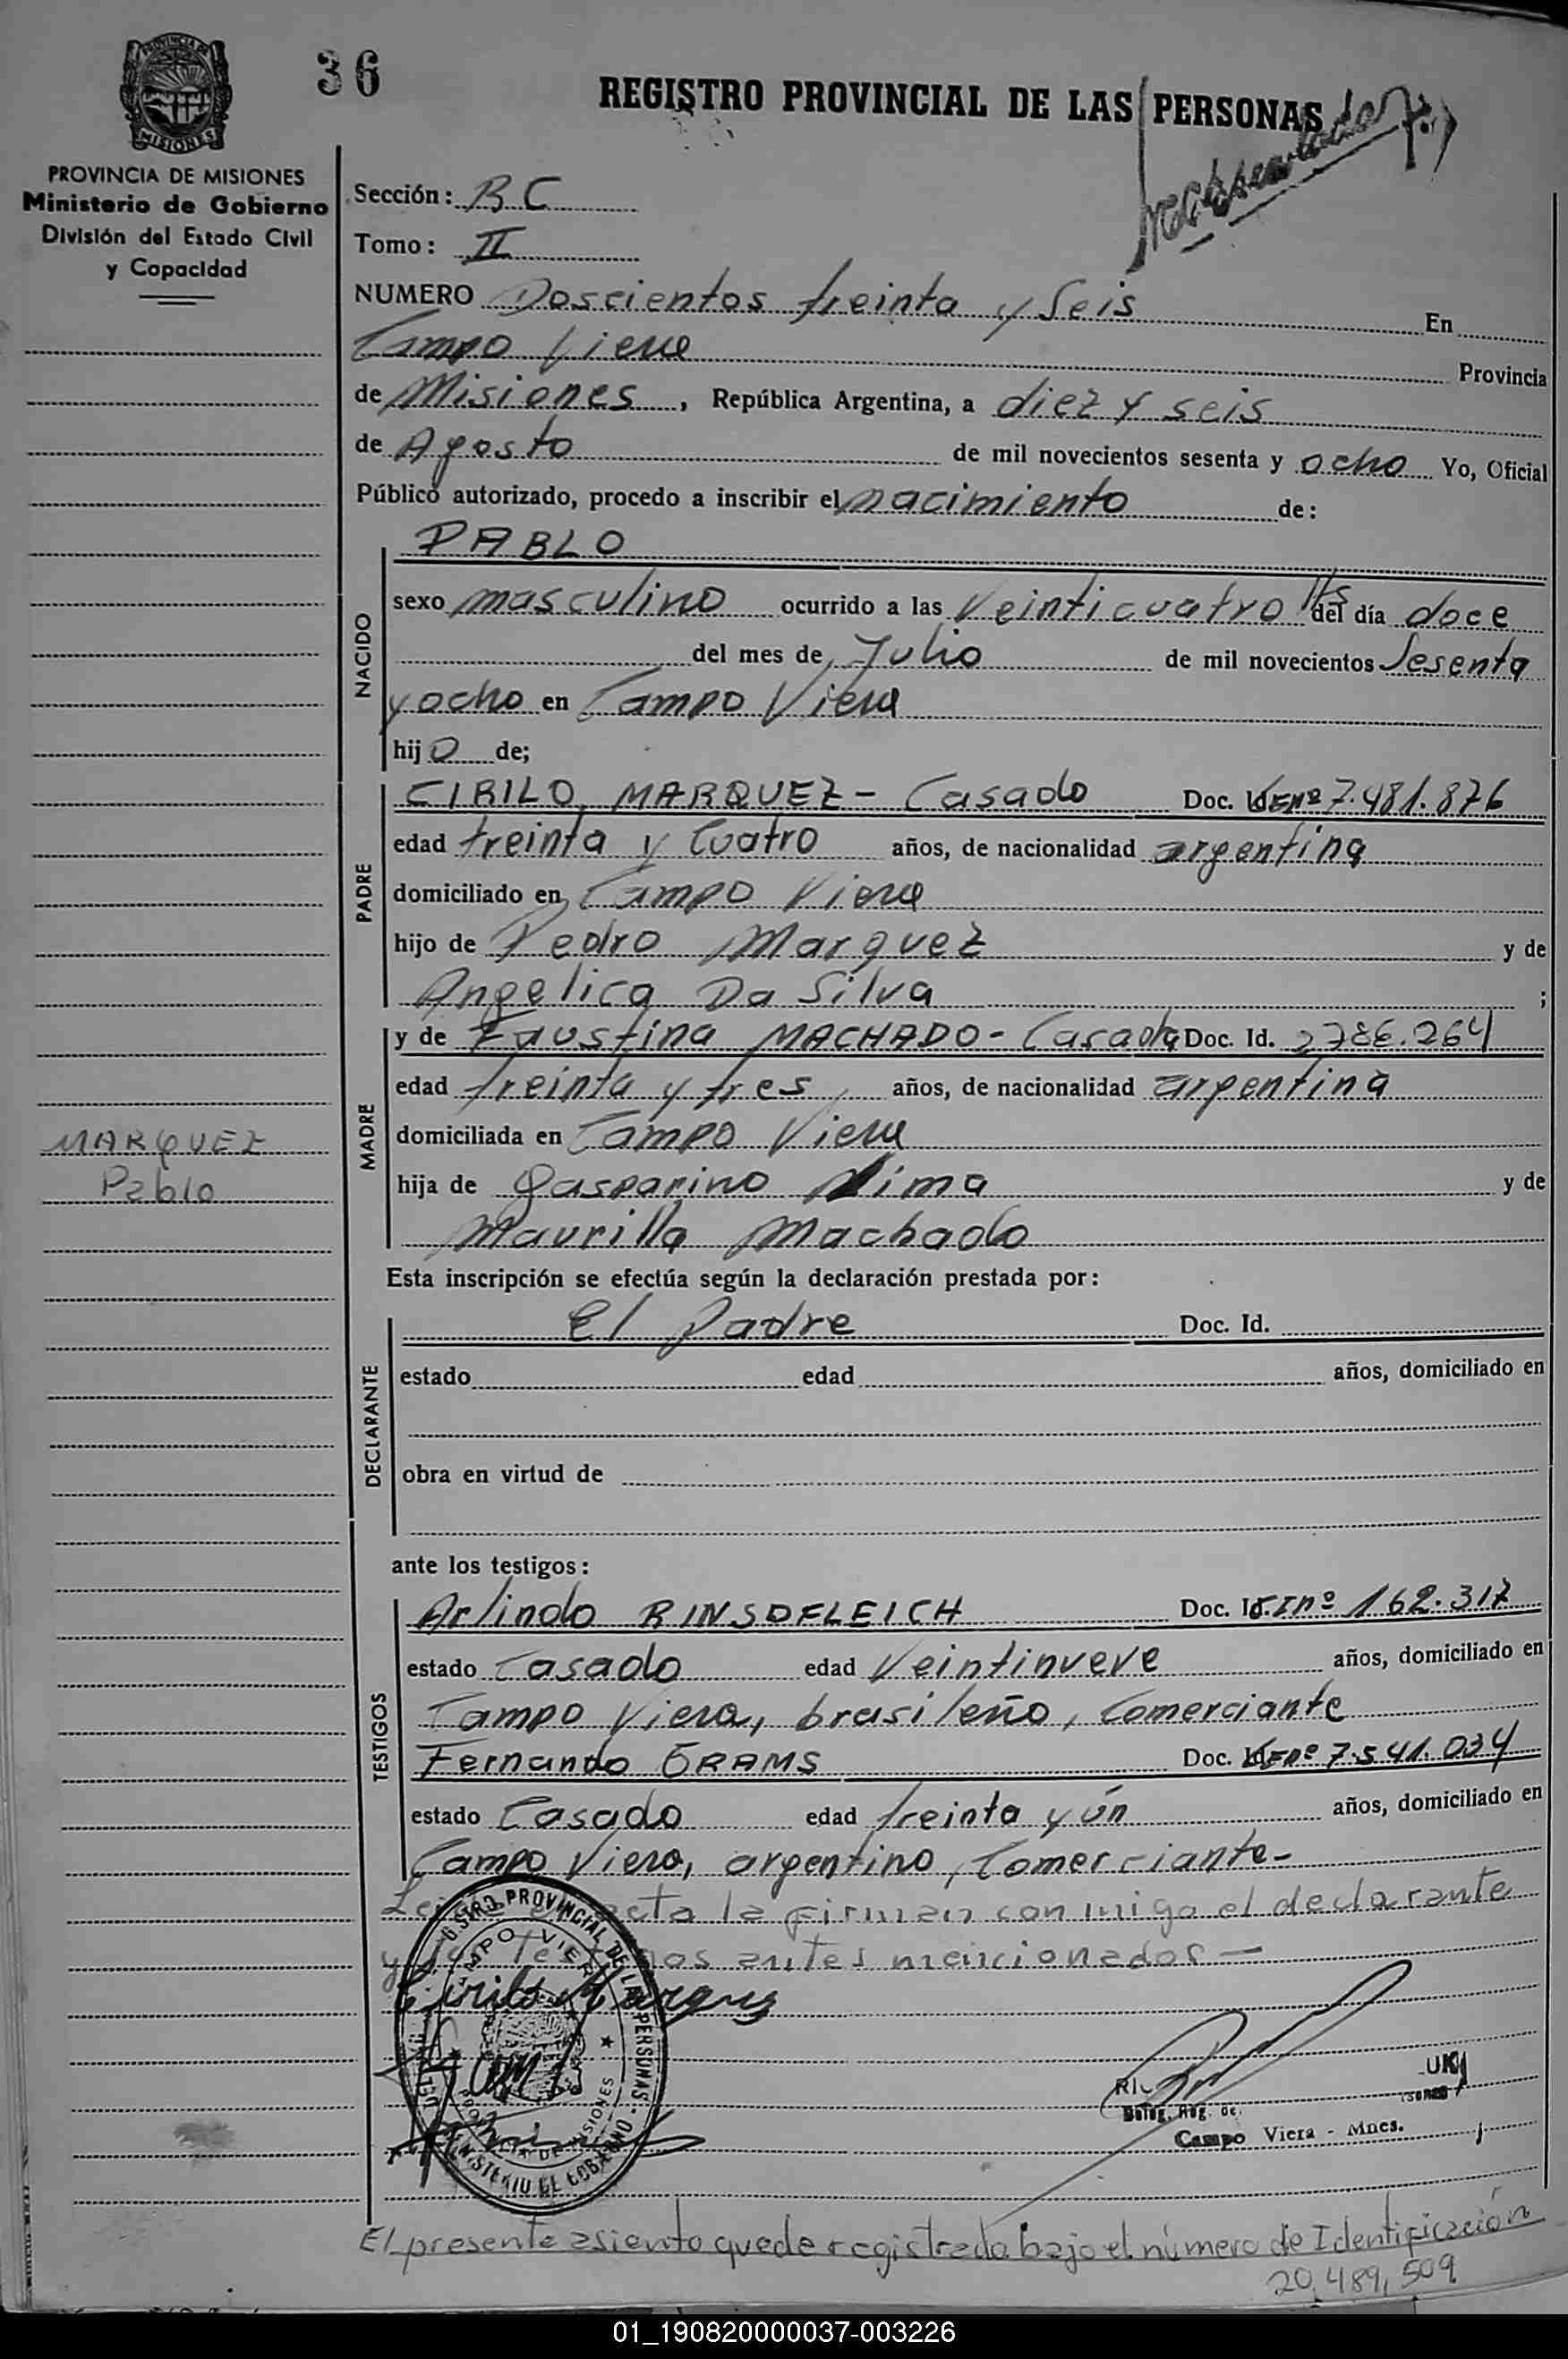 PROVINCIA DE
MISIONES
36
REGISTRO PROVINCIAL DE LAS PERSONAS
PROVINCIA DE MISIONES
Ministerio de Gobierno
División del Estado Civil
y Capacidad
Sección: BC
Tomo: II
NUMERO Doscientos treinta y Seis En
Campo Viera Provincia
de Misiones, República Argentina, a diez y seis
de Agosto de mil novecientos sesenta y ocho Yo, Oficial
Público autorizado, procedo a inscribir el nacimiento de:
NACIDO
PABLO
sexo masculino ocurrido a las Veinticuatro Hs del día doce
del mes de Julio de mil novecientos Sesenta
y ocho en Campo Viera
hijo de;
PADRE
CIRILO MARQUEZ - Casado Doc. Nº 7.481.876
edad treinta y Cuatro años, de nacionalidad argentina
domiciliado en Campo Viera
hijo de Pedro Marquez y de
Angelica Da Silva ;
MADRE
y de Faustina MACHADO - Casada Doc. Id. 2786.264
edad treinta y tres años, de nacionalidad argentina
domiciliada en Campo Viera
hija de Gasparino Lima y de
Maurilla Machado
MARQUEZ
Pablo
Esta inscripción se efectúa según la declaración prestada por:
DECLARANTE
El Padre Doc. Id.
estado edad años, domiciliado en
obra en virtud de
ante los testigos:
TESTIGOS
Arlindo RINSDFLEICH Doc. Id. nº 162.317
estado Casado edad Veintinueve años, domiciliado en
Campo Viera, brasileño, Comerciante
Fernando GRAMS Doc. nº 7.541.034
estado Casado edad treinta y ún años, domiciliado en
Campo Viera, argentino, Comerciante-
acta la firman con migo el declarante
y los testigos antes mencionados-
Cirilo Marques
REGISTRO PROVINCIAL DE LAS PERSONAS
CAMPO VIERA
PROVINCIA DE MISIONES
MINISTERIO DE GOBIERNO
Deleg. Reg. de
Campo Viera - Mnes.
El presente asiento queda registrado bajo el número de Identificación
20,489,509
01_190820000037-003226